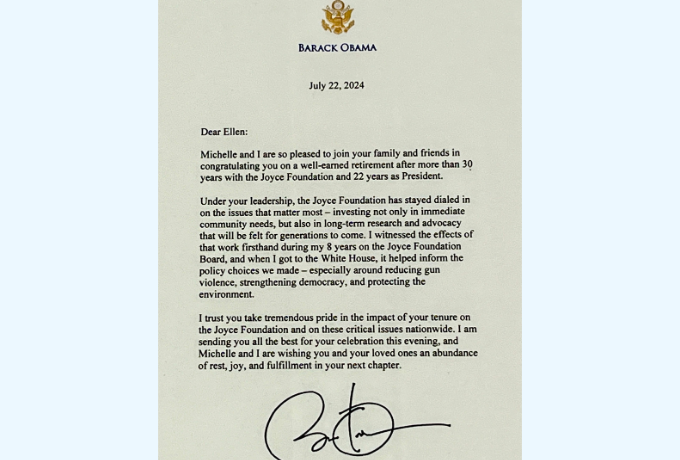 BARACK OBAMA
July 22, 2024
Dear Ellen:
Michelle and I are so pleased to join your family and friends in
congratulating you on a well-earned retirement after more than 30
years with the Joyce Foundation and 22 years as President.
Under your leadership, the Joyce Foundation has stayed dialed in
on the issues that matter most – investing not only in immediate
community needs, but also in long-term research and advocacy
that will be felt for generations to come. I witnessed the effects of
that work firsthand during my 8 years on the Joyce Foundation
Board, and when I got to the White House, it helped inform the
policy choices we made – especially around reducing gun
violence, strengthening democracy, and protecting the
environment.
I trust you take tremendous pride in the impact of your tenure on
the Joyce Foundation and on these critical issues nationwide. I am
sending you all the best for your celebration this evening, and
Michelle and I are wishing you and your loved ones an abundance
of rest, joy, and fulfillment in your next chapter.